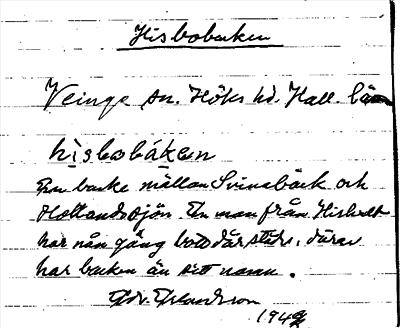 Hisbobacken
Veinge sn. Höks hd. Hall. län
hisbobáken
En backe mällan Svinabäck och
Hollandssjön. En man från Hishult
har nån gång bott där städs, därav
har backen än sitt namn.
Edv. Erlandsson
1942